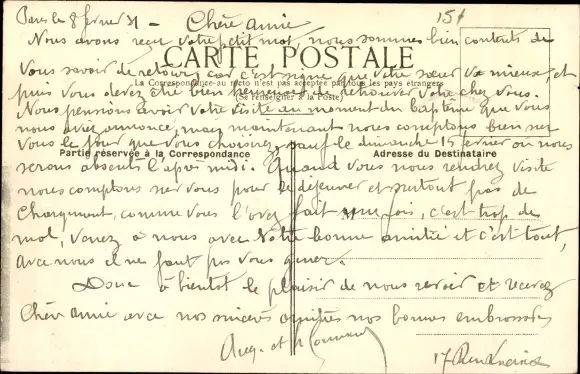 Paris le 8 février 31 - Chère amie 15f
Nous avons reçu votre petit mot, nous sommes bien contents de
CARTE POSTALE
vous savoir de retour, car c'est signe que votre sœur va mieux, et
La Correspondance au recto n'est pas acceptée par tous les pays étrangers
puis vous devez être bien de retrouver votre chez vous.
(Se renseigner à la Poste)
Nous pensions avoir votre visite au moment du baptême que vous
nous aviez annoncé, mais maintenant nous comptons bien sur
vous le jour que vous choisirez sauf le dimanche 15 février ou nous
Partie réservée à la Correspondance Adresse du Destinataire
serons absents l'après midi. Quand vous nous rendrez visite
nous comptons sur vous pour le déjeuner et surtout pas de
chargement, comme vous l'avez fait une fois, c'est trop de
mal, venez à nous avec votre bonne amitié et c'est tout,
avec nous il ne faut pas vous gêner.
Donc à bientôt le plaisir de nous revoir et recevez
Chère amie avec nos sincères amitiés nos bonnes embrassades
et
17 Rue